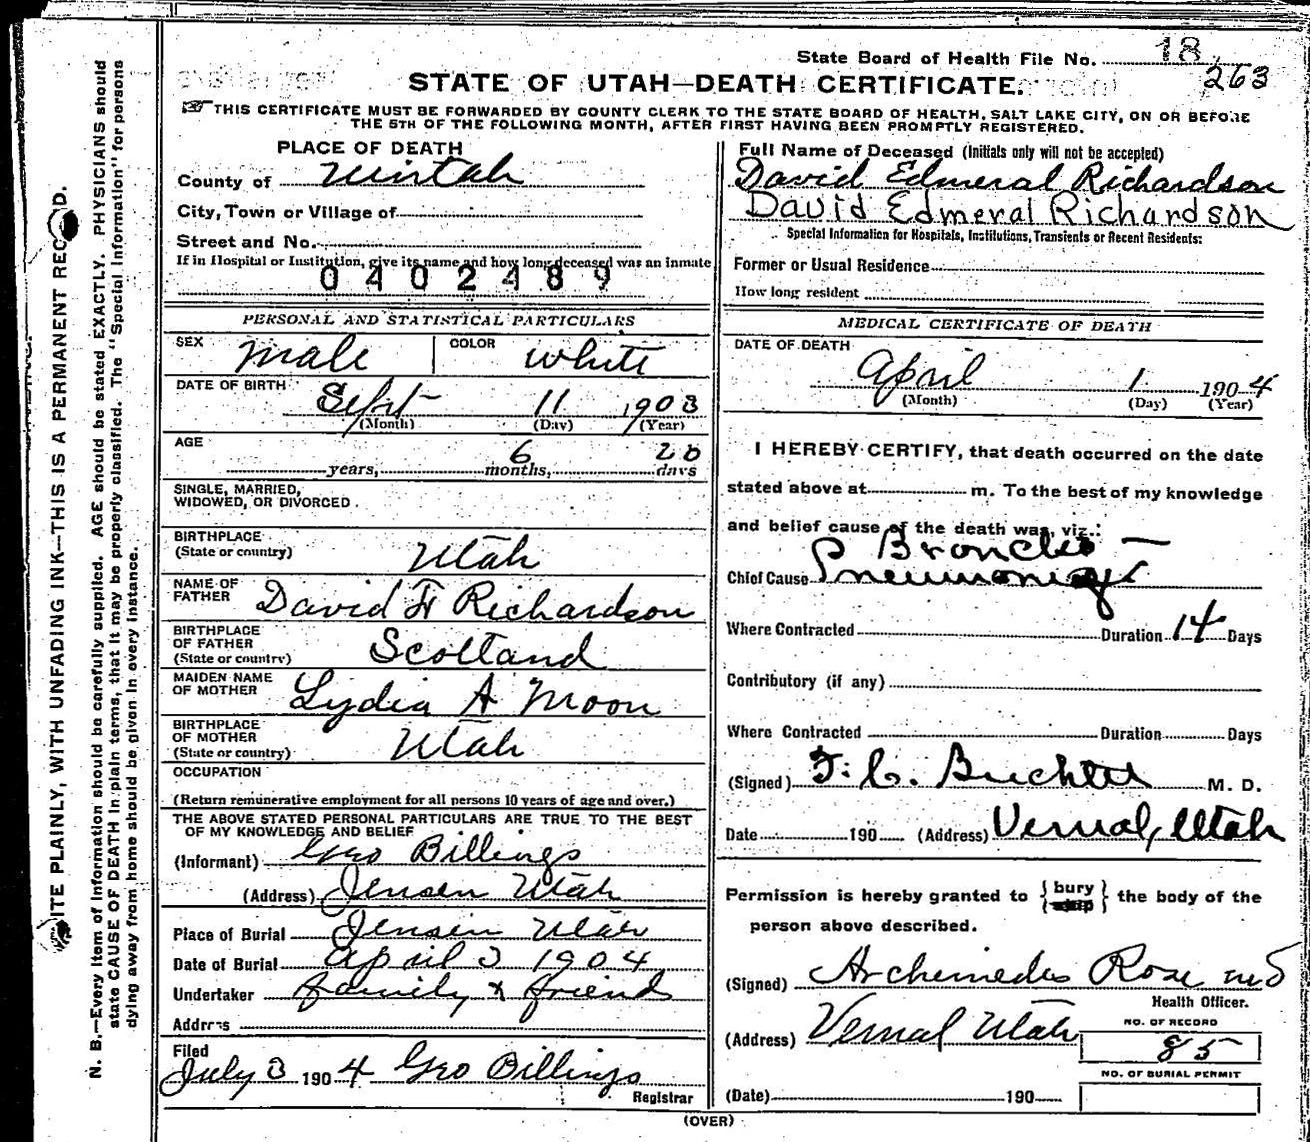 State Board of Health File No. 18
263
STATE OF UTAH—DEATH CERTIFICATE.
THIS CERTIFICATE MUST BE FORWARDED BY COUNTY CLERK TO THE STATE BOARD OF HEALTH, SALT LAKE CITY, ON OR BEFORE
THE 5TH OF THE FOLLOWING MONTH, AFTER FIRST HAVING BEEN PROMPTLY REGISTERED.
PLACE OF DEATH
County of Uintah
City, Town or Village of
Street and No.
If in Hospital or Institution, give its name and how long deceased was an inmate
0402489
PERSONAL AND STATISTICAL PARTICULARS
SEX male COLOR white
DATE OF BIRTH Sept 11 1903
(Month) (Day) (Year)
AGE 6 20
years, months, days
SINGLE, MARRIED,
WIDOWED, OR DIVORCED
BIRTHPLACE
(State or country) Utah
NAME OF
FATHER David F Richardson
BIRTHPLACE
OF FATHER
(State or country) Scotland
MAIDEN NAME
OF MOTHER Lydia A Moon
BIRTHPLACE
OF MOTHER
(State or country) Utah
OCCUPATION
(Return remunerative employment for all persons 10 years of age and over.)
THE ABOVE STATED PERSONAL PARTICULARS ARE TRUE TO THE BEST
OF MY KNOWLEDGE AND BELIEF
(Informant) Geo Billings
(Address) Jensen Utah
Place of Burial Jensen Utah
Date of Burial April 3 1904
Undertaker family & friend
Address
Filed
July 3 1904 Geo Billings
Registrar
Full Name of Deceased (Initials only will not be accepted)
David Edmeral Richardson
David Edmeral Richardson
Special Information for Hospitals, Institutions, Transients or Recent Residents:
Former or Usual Residence
How long resident
MEDICAL CERTIFICATE OF DEATH
DATE OF DEATH
April 1 1904
(Month) (Day) (Year)
I HEREBY CERTIFY, that death occurred on the date
stated above at m. To the best of my knowledge
and belief cause of the death was, viz.:
Broncho —
Chief Cause Pneumonia
Where Contracted Duration 14 Days
Contributory (if any)
Where Contracted Duration Days
(Signed) F. C. Buchter M. D.
Date 190 (Address) Vernal, Utah
Permission is hereby granted to {bury ship} the body of the
person above described.
(Signed) Archemedes Rose MD
Health Officer.
(Address) Vernal Utah
NO. OF RECORD
85
NO. OF BURIAL PERMIT
(Date) 190
(OVER)
WRITE PLAINLY, WITH UNFADING INK—THIS IS A PERMANENT RECORD.
N. B.—Every item of information should be carefully supplied. AGE should be stated EXACTLY. PHYSICIANS should
state CAUSE OF DEATH in plain terms, that it may be properly classified. The "Special Information" for persons
dying away from home should be given in every instance.